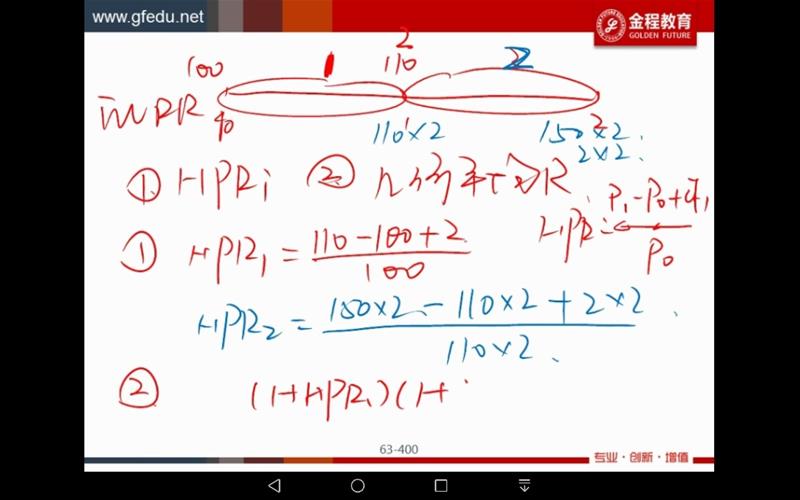 www.gfedu.net
金程教育
GOLDEN FUTURE
100 1 2 110 2
110×2 150×2
2×2
① HPRi ②
HPR = P₁-P₀+d₁ / P₀
① HPR₁ = 110-100+2 / 100
HPR₂ = 150×2-110×2+2×2 / 110×2
② (1+HPR₁)(1+
63-400
专业·创新·增值